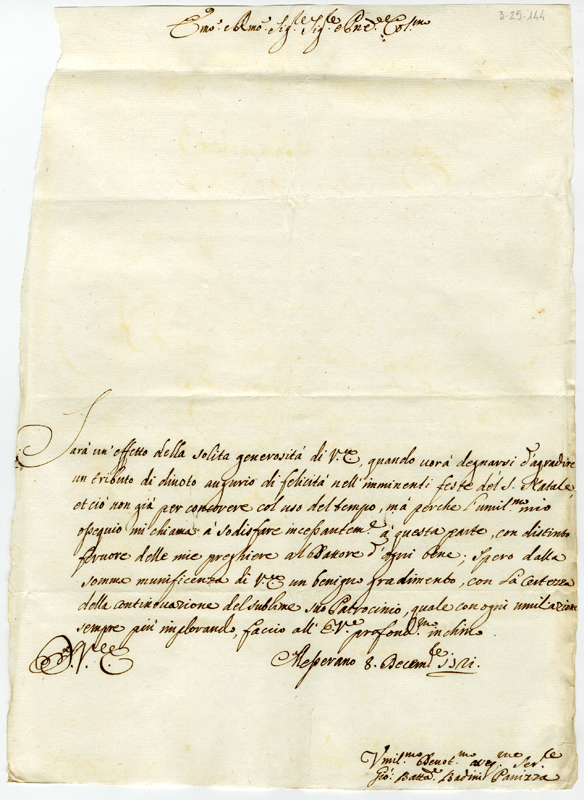 3-25-144
Em.o e Rmo. Sig.re Sig.re e Pne Col.mo
Sarà un'effetto della solita generosità di V.E., quando vorà degnarsi d'agradire
un tributo di divoto augurio di felicità nell'imminenti feste del S. Natale,
et ciò non già per concorere col uso del tempo, mà perche l'umil.mo mio
ossequio mi chiama à sodisfare incessantem.e à questa parte, con distinto
fervore delle mie preghiere al Dattore d'ogni bene; Spero dalla
somma munificenza di V.E. un benigno gradimento, con la certezza
della continovazione del sublime suo Patrocinio, quale con ogni umiliazione
sempre più implorando, faccio all'E.V. profond.mo inchino
D. V. E. Messerano 8. Decem.re 1721.
Vmil.mo Devot.mo Ser.re
Gio: Batta. Badini Panizza